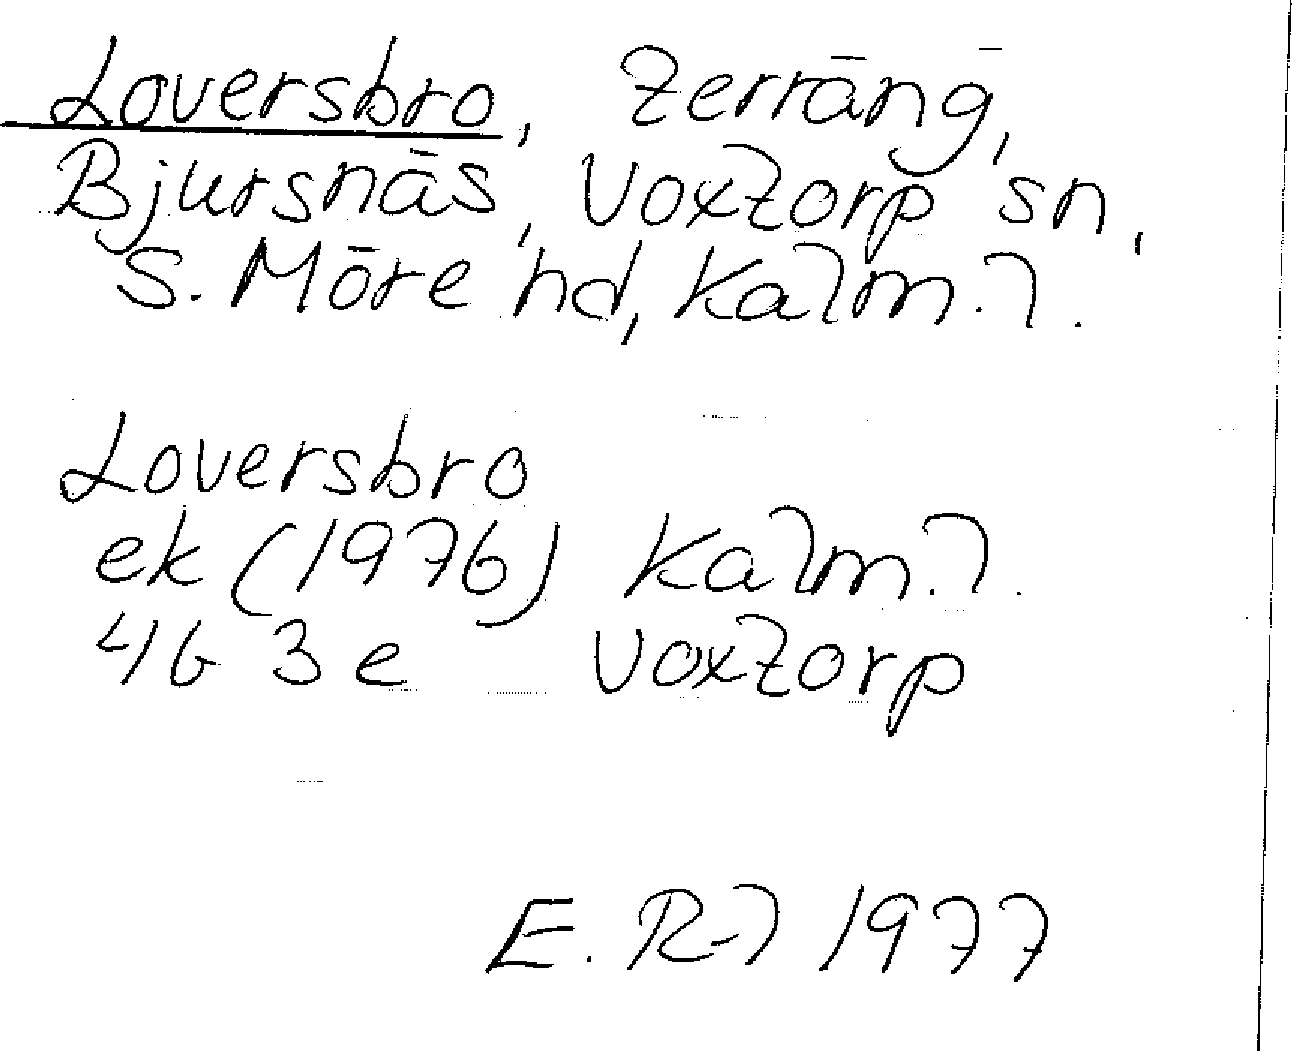 Loversbro, terräng,
Bjursnäs, Voxtorp sn,
S. Möre hd, Kalm. l.
Loversbro
ek (1976) Kalm. l.
4G 3e Voxtorp
E. R-l 1977